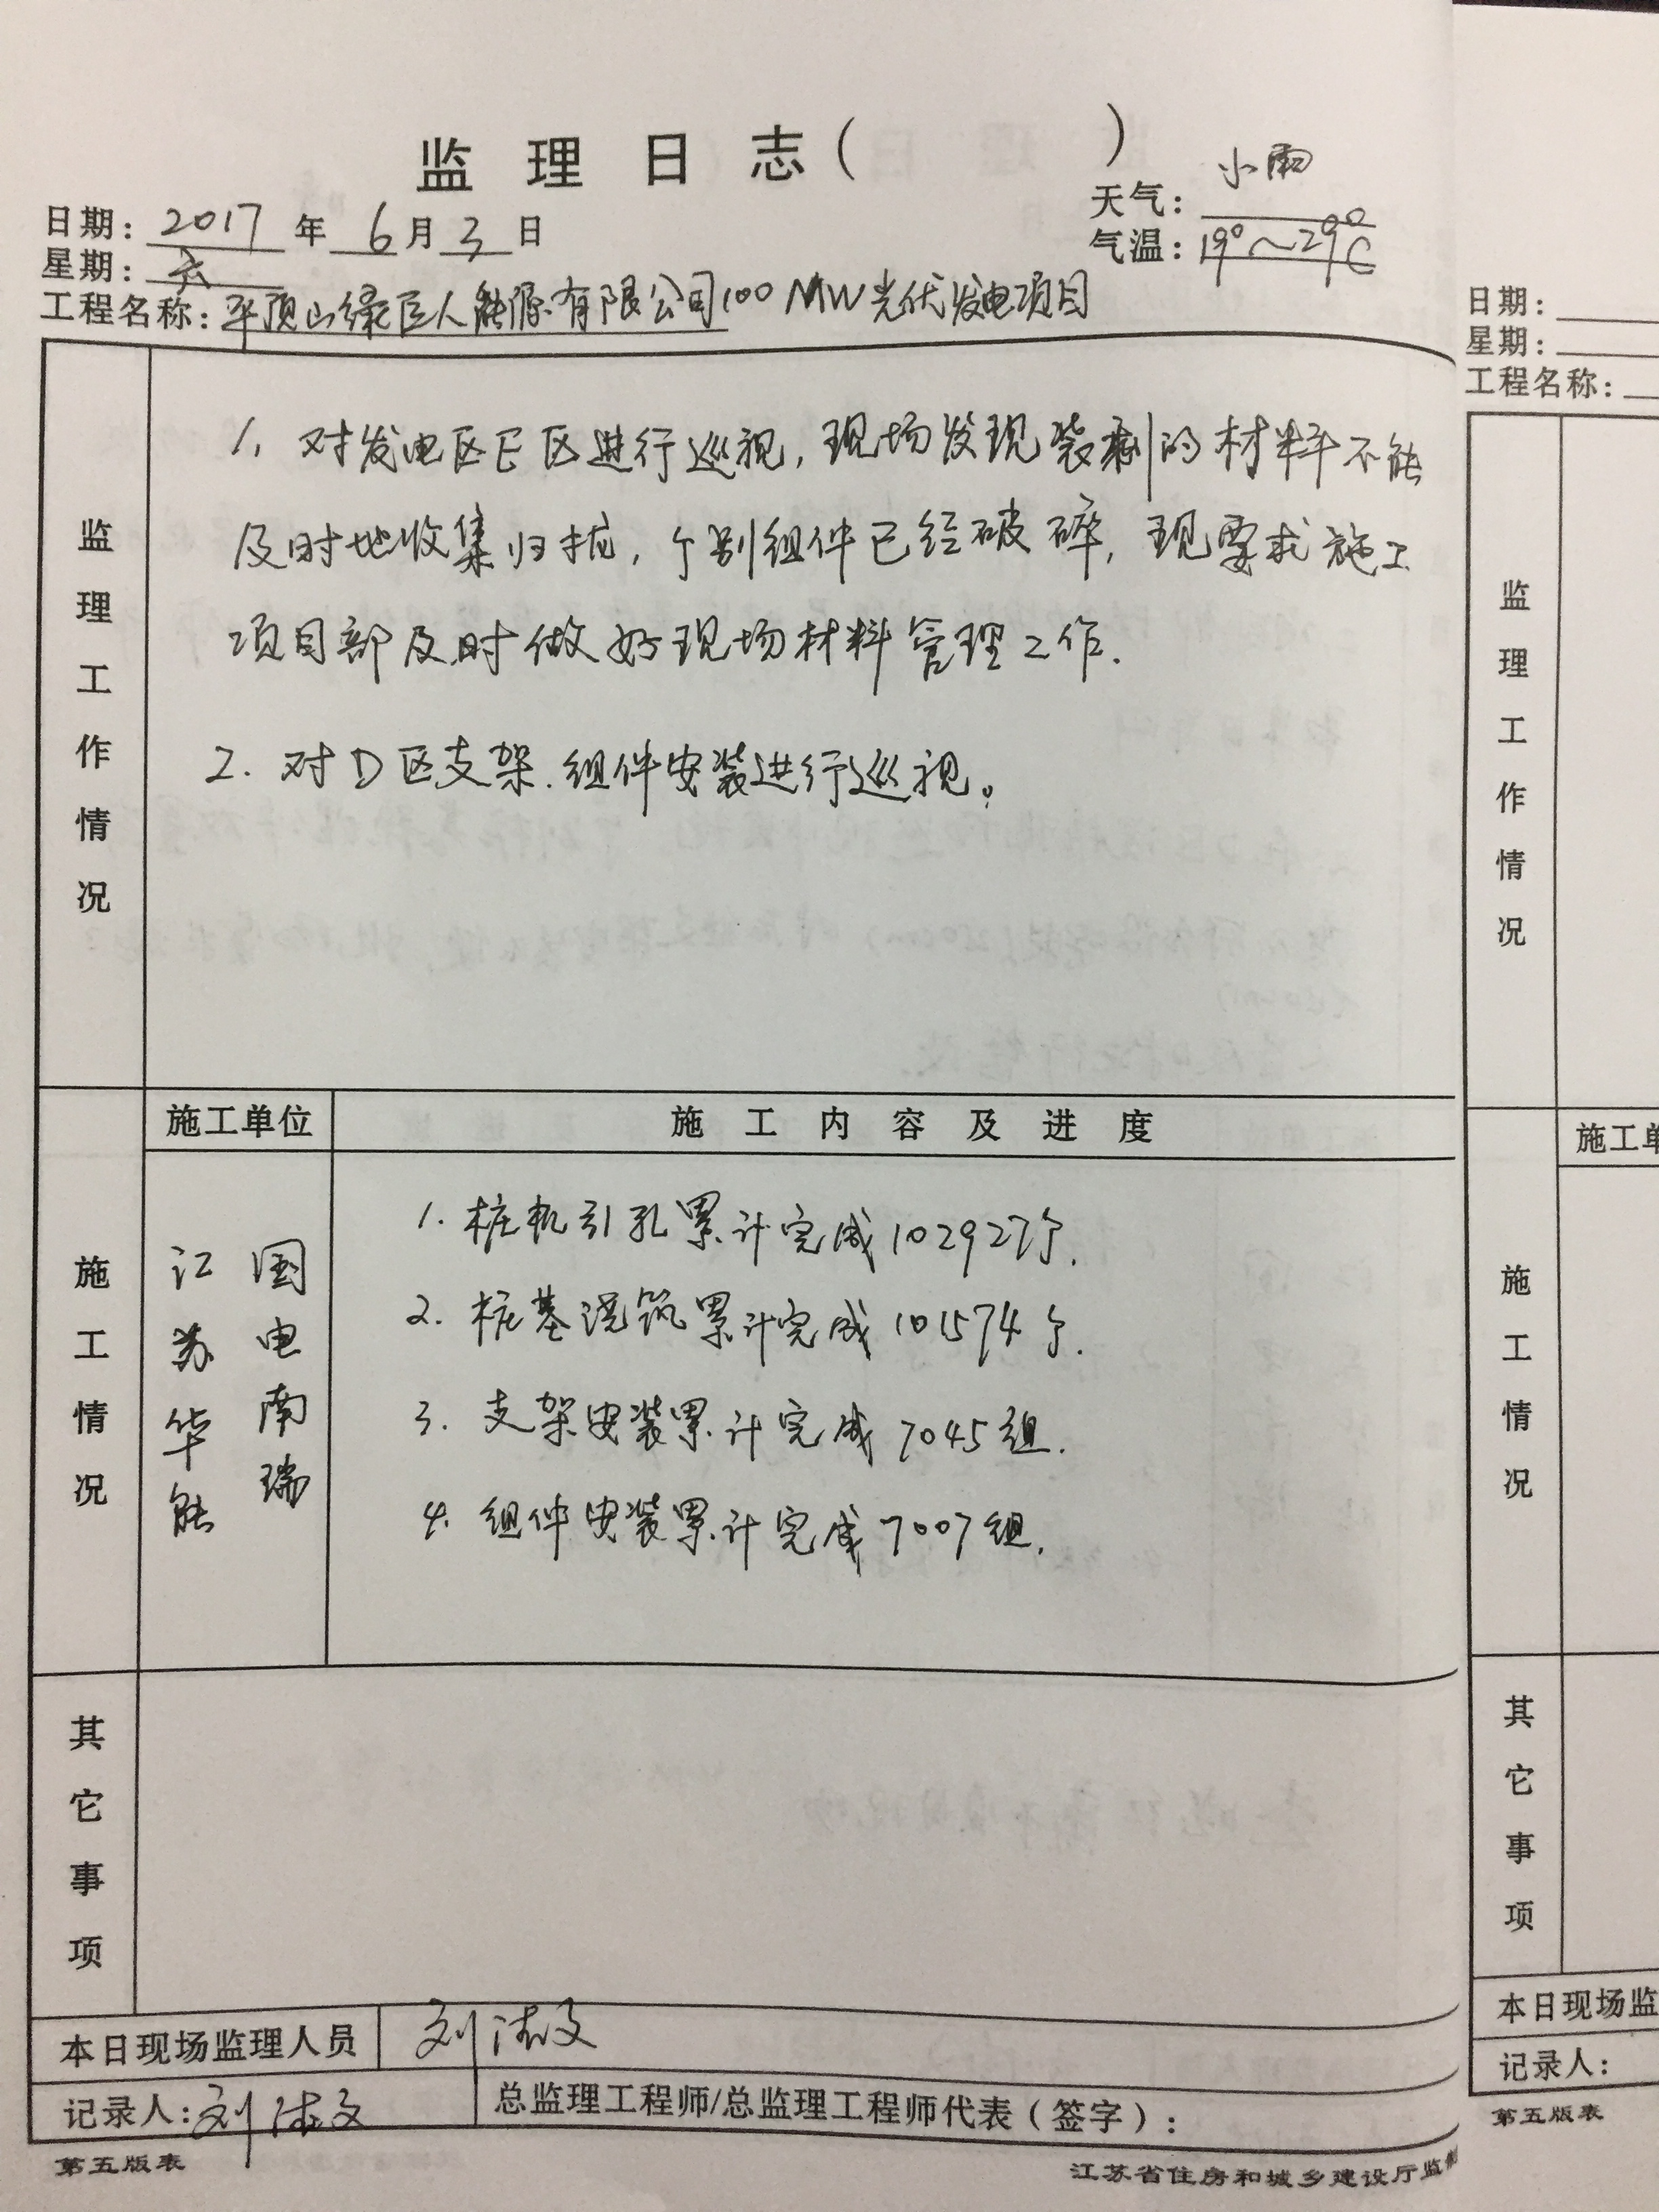 监理日志(　　　)
天气：小雨
日期：2017年6月3日
气温：19°～29°C
星期：六
工程名称：平顶山绿巨人能源有限公司100MW光伏发电项目
监理工作情况
1、对发电区E区进行巡视，现场发现装剩的材料不能
及时地收集归拢，个别组件已经破碎，现要求施工
项目部及时做好现场材料管理工作.
2.对D区支架.组件安装进行巡视。
施工单位
施工内容及进度
施工情况
国电南瑞
江苏华能
1.桩机引孔累计完成102927个.
2.桩基浇筑累计完成101574个.
3.支架安装累计完成7045组.
4.组件安装累计完成7007组.
其它事项
本日现场监理人员 刘文
记录人：刘文
总监理工程师/总监理工程师代表（签字）：
第五版表
江苏省住房和城乡建设厅监
日期：
星期：
工程名称：
监理工作情况
施工单
施工情况
其它事项
本日现场监
记录人：
第五版表